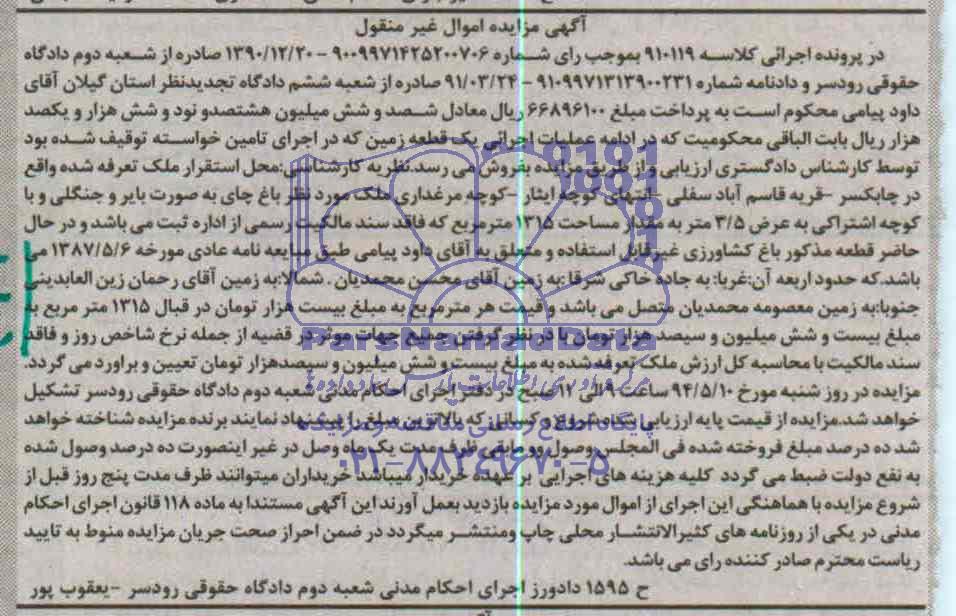 آگهی مزایده اموال غیر منقول
در پرونده اجرائی کلاسه ۹۱۰۱۱۹ بموجب رای شماره ۹۰۰۹۹۷۱۴۲۵۲۰۰۷۰۶ - ۱۳۹۰/۱۲/۲۰ صادره از شعبه دوم دادگاه
حقوقی رودسر و دادنامه شماره ۹۱۰۹۹۷۱۳۱۳۹۰۰۲۳۱ - ۹۱/۰۳/۲۴ صادره از شعبه ششم دادگاه تجدیدنظر استان گیلان آقای
داود پیامی محکوم است به پرداخت مبلغ ۶۶۸۹۶۱۰۰ ریال معادل شصد و شش میلیون هشتصدو نود و شش هزار و یکصد
هزار ریال بابت الباقی محکومیت که در ادامه عملیات اجرایی یک قطعه زمین که در اجرای تامین خواسته توقیف شده بود
توسط کارشناس دادگستری ارزیابی و از طریق مزایده بفروش می رسد.نظریه کارشناسی:محل استقرار ملک تعرفه شده واقع
در چابکسر -قریه قاسم آباد سفلی -انتهای کوچه ایثار -کوچه مرغداری ملک مورد نظر باغ چای به صورت بایر و جنگلی و با
کوچه اشتراکی به عرض ۳/۵ متر به مقدار مساحت ۱۳۱۵ مترمربع که فاقد سند مالکیت رسمی از اداره ثبت می باشد و در حال
حاضر قطعه مذکور باغ کشاورزی غیرقابل استفاده و متعلق به آقای داود پیامی طبق مبایعه نامه عادی مورخه ۱۳۸۷/۵/۶ می
باشد.که حدود اربعه آن:غربا: به جاده خاکی شرقا:به زمین آقای محسن محمدیان . شمالا:به زمین آقای رحمان زین العابدینی
جنوبا:به زمین معصومه محمدیان متصل می باشد و قیمت هر مترمربع به مبلغ بیست هزار تومان در قبال ۱۳۱۵ متر مربع به
مبلغ بیست و شش میلیون و سیصد هزار تومان با در نظر گرفتن جمیع جهات موثر در قضیه از جمله نرخ شاخص روز و فاقد
سند مالکیت با محاسبه کل ارزش ملک تعرفه شده به مبلغ بیست و شش میلیون و سیصدهزار تومان تعیین و براورد می گردد.
مزایده در روز شنبه مورخ ۹۴/۵/۱۰ ساعت ۹الی ۱۲صبح در دفتر اجرای احکام مدنی شعبه دوم دادگاه حقوقی رودسر تشکیل
خواهد شد.مزایده از قیمت پایه ارزیابی شروع و کسانی که بالاترین مبلغ را پیشنهاد نمایند برنده مزایده شناخته خواهد
شد ده درصد مبلغ فروخته شده فی المجلس وصول و مابقی ظرف مدت یک ماه وصل در غیر اینصورت ده درصد وصول شده
به نفع دولت ضبط می گردد کلیه هزینه های اجرایی بر عهده خریدار میباشد خریداران میتوانند ظرف مدت پنج روز قبل از
شروع مزایده با هماهنگی این اجرای از اموال مورد مزایده بازدید بعمل آورند این آگهی مستندا به ماده ۱۱۸ قانون اجرای احکام
مدنی در یکی از روزنامه های کثیرالانتشار محلی چاپ ومنتشر میگردد در ضمن احراز صحت جریان مزایده منوط به تایید
ریاست محترم صادر کننده رای می باشد.
ح ۱۵۹۵ دادورز اجرای احکام مدنی شعبه دوم دادگاه حقوقی رودسر -یعقوب پور
ParsNamadData
پایگاه اطلاع رسانی مناقصه و مزایده
۰۲۱-۸۸۳۴۹۶۷۰-۵